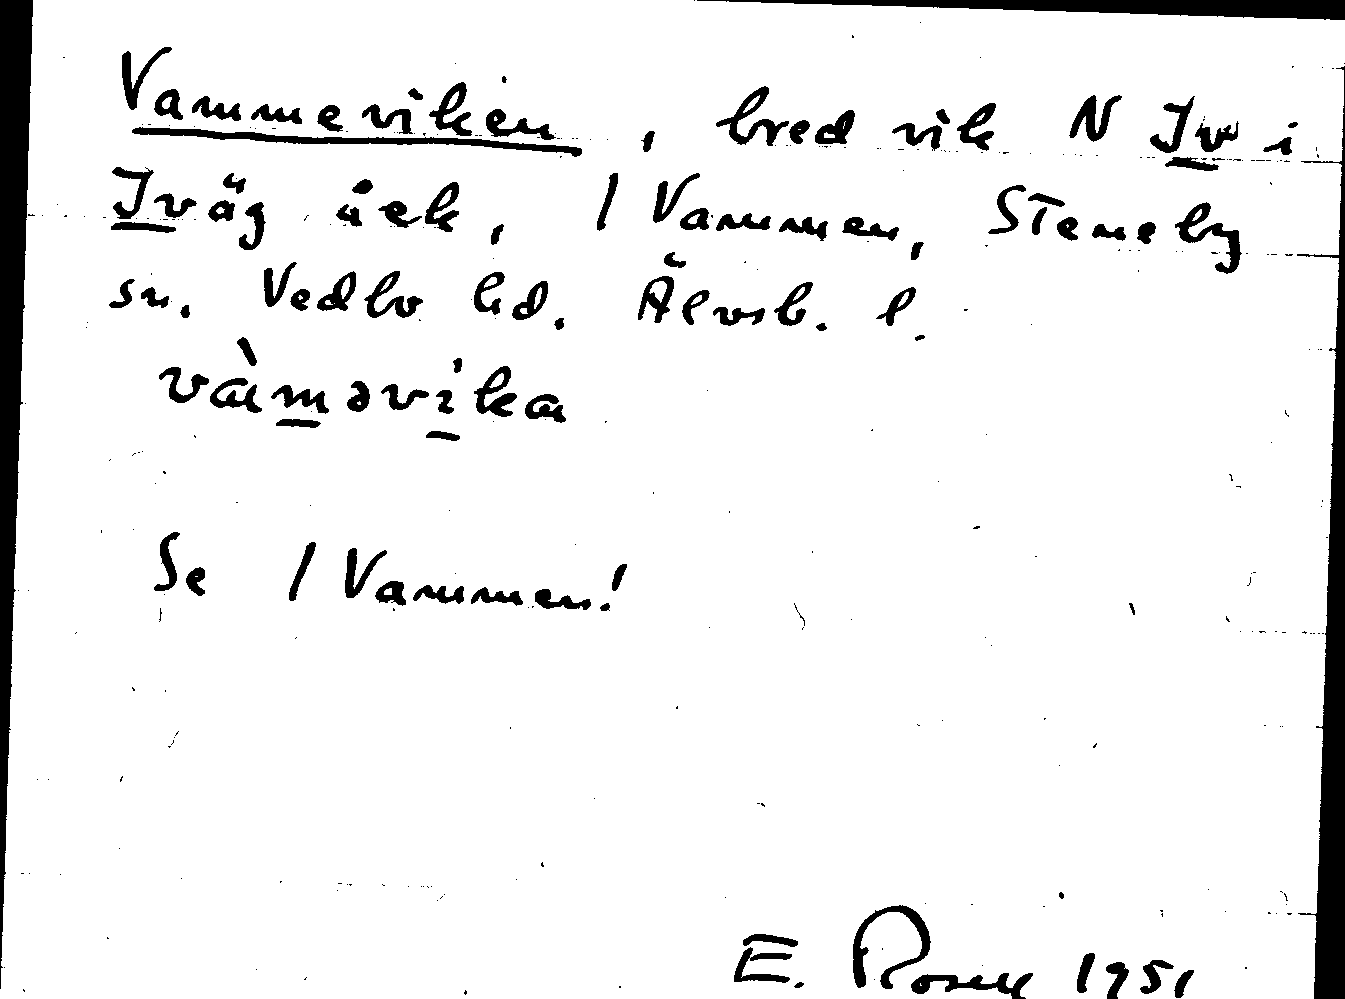 Vammeviken, bred vik N Iv i
Iväg åek, / Vammen, Steneby
sn. Vedbo hd. Älvsb. l.
vàməvika
Se / Vammen!
E. Rosell 1951